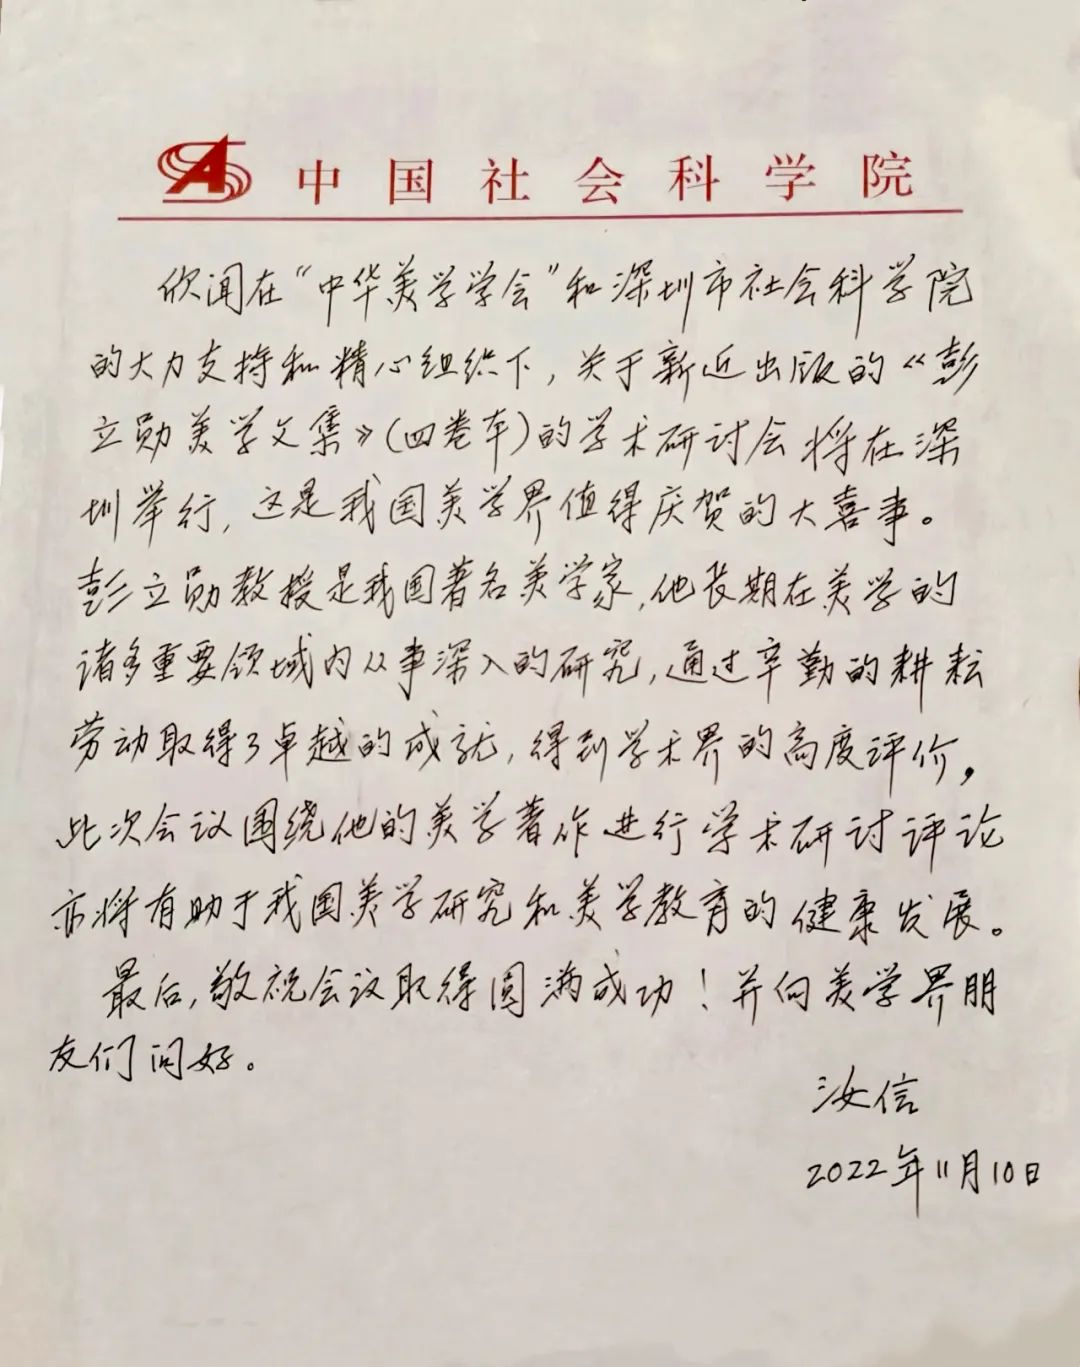 中国社会科学院
欣闻在“中华美学学会”和深圳市社会科学院
的大力支持和精心组织下，关于新近出版的《彭
立勋美学文集》(四卷本)的学术研讨会将在深
圳举行，这是我国美学界值得庆贺的大喜事。
彭立勋教授是我国著名美学家，他长期在美学的
诸多重要领域内从事深入的研究，通过辛勤的耕耘
劳动取得了卓越的成就，得到学术界的高度评价，
此次会议围绕他的美学著作进行学术研讨评论
亦将有助于我国美学研究和美学教育的健康发展。
最后，敬祝会议取得圆满成功！并向美学界朋
友们问好。
汝信
2022年11月10日